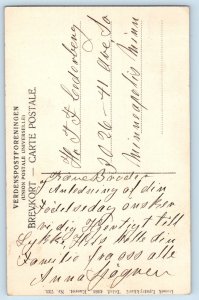 VERDENSPOSTFORENINGEN
(UNION POSTALE UNIVERSELLE)
BREVKORT — CARTE POSTALE.
H. T. F. Cederberg
2026-41 Ave So
Minneapolis Minn
Kære Broder
Anledning af din
Fødelsedag ønsker
vi dig Hjertligt til
Lykke. Hils hele din
Familie fra oss alle
Anna